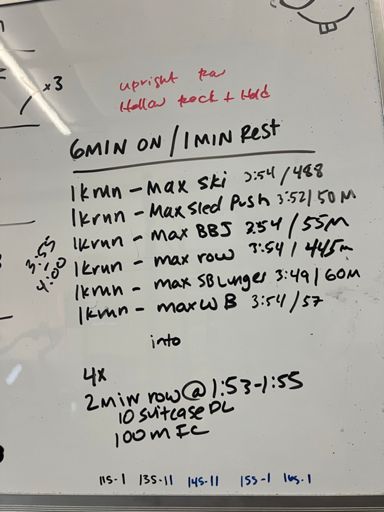 x3
upright row
Hollow rock + Hold
6MIN ON / 1 MIN REST
1krun - Max Ski 3:54 / 488
1krun - Max Sled Push 3:52 / 50M
1krun - Max BBJ 354 / 55M
1krun - max row 3:54 / 445m
1krun - max SB Lunges 3:49 / 60M
1krun - max WB 3:54 / 57
3:55
4:00
into
4x
2min row @ 1:53-1:55
10 suitcase DL
100m FC
115-1 135-11 145-11 155-1 165-1